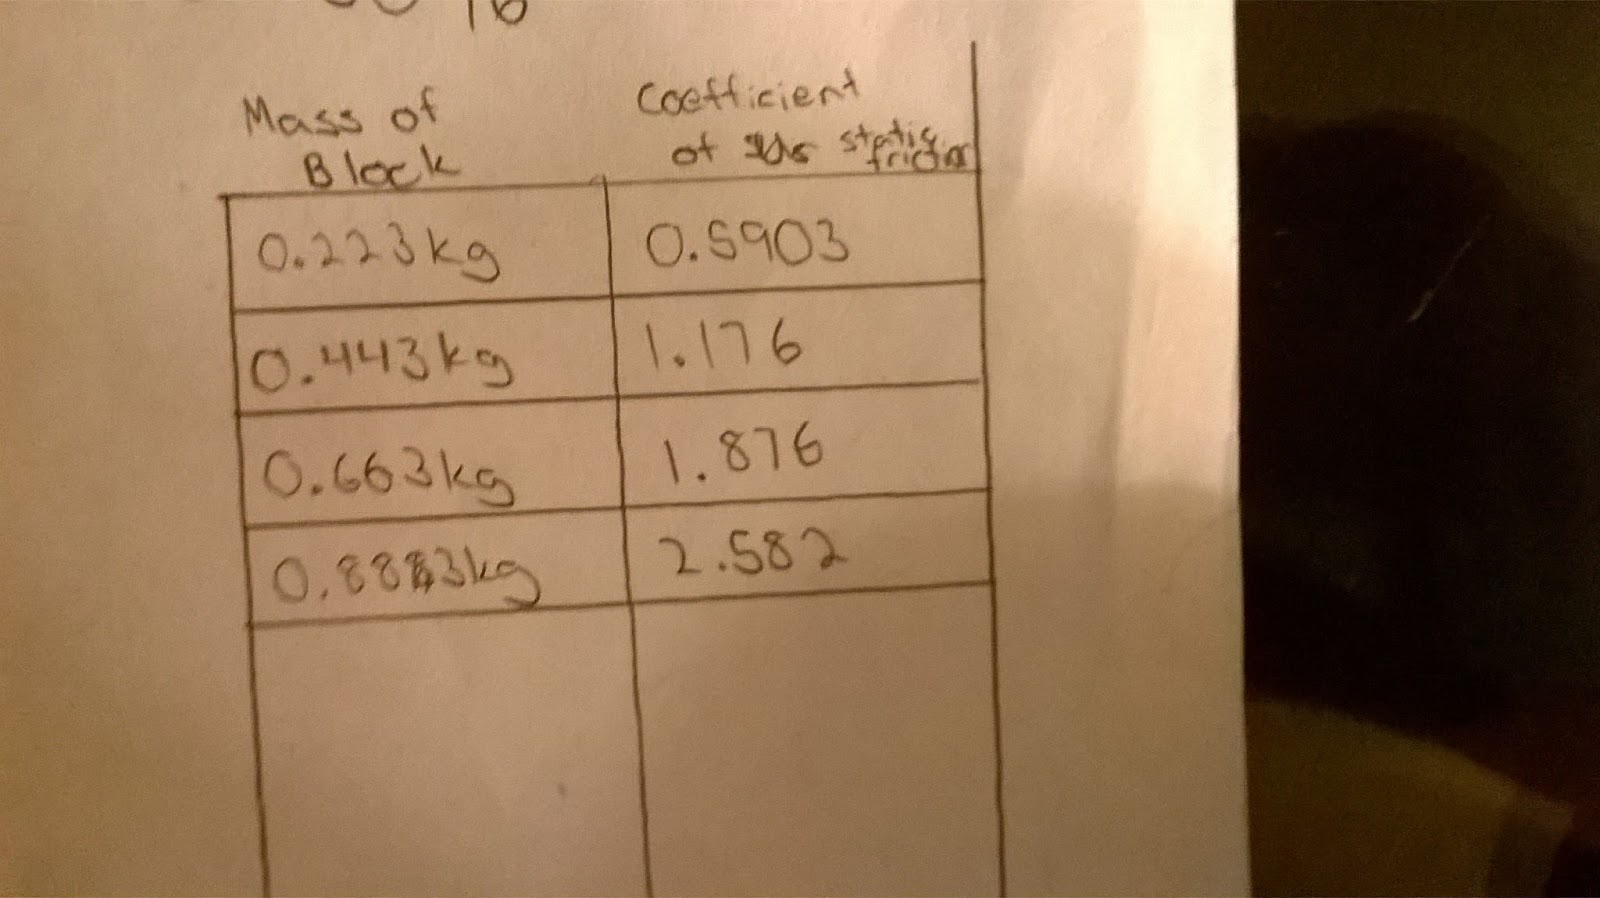 Mass of
Block
Coefficient
of static
friction
0.223kg 0.5903
0.443kg 1.176
0.663kg 1.876
0.883kg 2.582